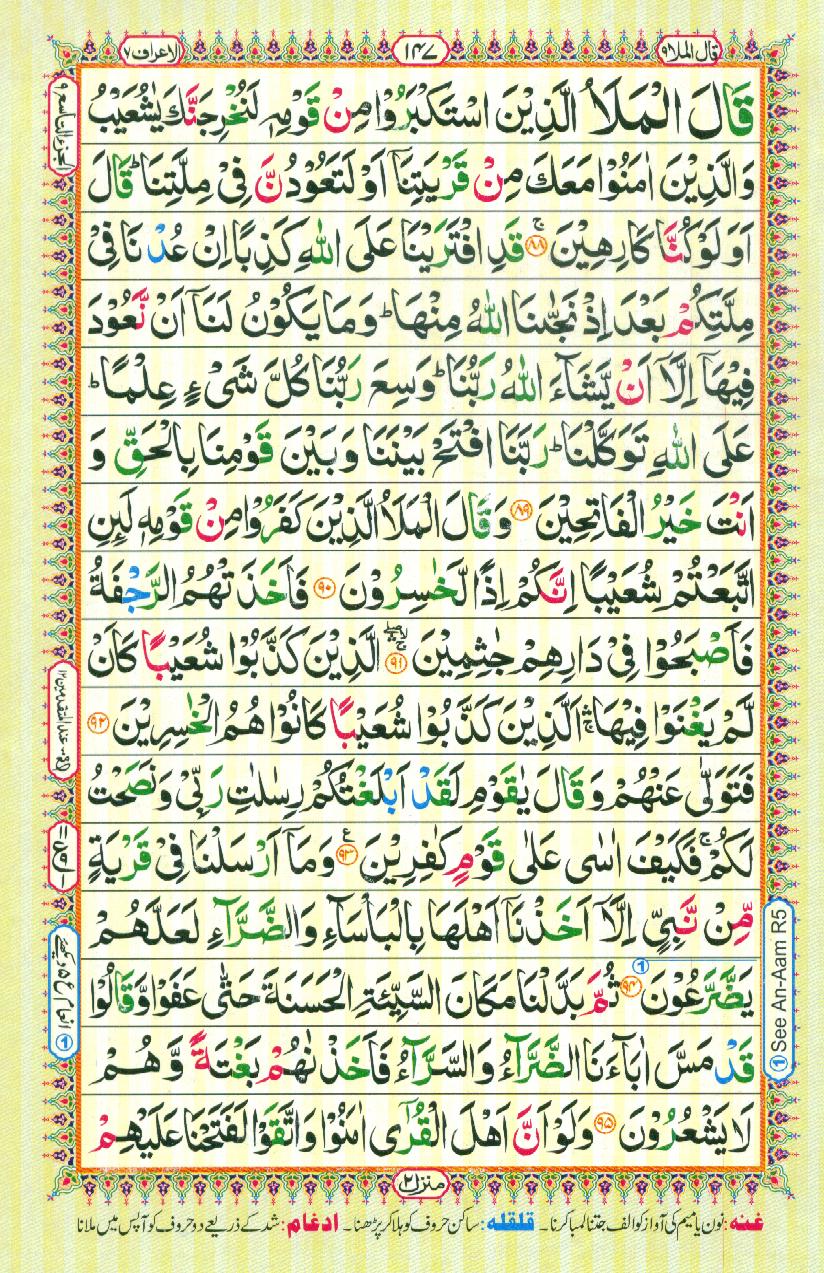 قال الملا ۹
۱۴۷
الاعراف ۷
قَالَ الْمَلَاُ الَّذِيْنَ اسْتَكْبَرُوْا مِنْ قَوْمِهٖ لَنُخْرِجَنَّكَ يٰشُعَيْبُ
وَالَّذِيْنَ اٰمَنُوْا مَعَكَ مِنْ قَرْيَتِنَاۤ اَوْ لَتَعُوْدُنَّ فِىْ مِلَّتِنَا ؕ قَالَ
اَوَلَوْ كُنَّا كَارِهِيْنَ ۚ ﴿۸۸﴾ قَدِ افْتَرَيْنَا عَلَى اللّٰهِ كَذِبًا اِنْ عُدْنَا فِىْ
مِلَّتِكُمْ بَعْدَ اِذْ نَجّٰٮنَا اللّٰهُ مِنْهَا ؕ وَمَا يَكُوْنُ لَنَاۤ اَنْ نَّعُوْدَ
فِيْهَاۤ اِلَّاۤ اَنْ يَّشَآءَ اللّٰهُ رَبُّنَا ؕ وَسِعَ رَبُّنَا كُلَّ شَىْءٍ عِلْمًا ؕ
عَلَى اللّٰهِ تَوَكَّلْنَا ؕ رَبَّنَا افْتَحْ بَيْنَنَا وَبَيْنَ قَوْمِنَا بِالْحَقِّ وَ
اَنْتَ خَيْرُ الْفَاتِحِيْنَ ﴿۸۹﴾ وَقَالَ الْمَلَاُ الَّذِيْنَ كَفَرُوْا مِنْ قَوْمِهٖ لَئِنِ
اتَّبَعْتُمْ شُعَيْبًا اِنَّكُمْ اِذًا لَّخٰسِرُوْنَ ﴿۹۰﴾ فَاَخَذَتْهُمُ الرَّجْفَةُ
فَاَصْبَحُوْا فِىْ دَارِهِمْ جٰثِمِيْنَ ﴿۹۱﴾ الَّذِيْنَ كَذَّبُوْا شُعَيْبًا كَاَنْ
لَّمْ يَغْنَوْا فِيْهَا ۛۚ اَلَّذِيْنَ كَذَّبُوْا شُعَيْبًا كَانُوْا هُمُ الْخٰسِرِيْنَ ﴿۹۲﴾
فَتَوَلّٰى عَنْهُمْ وَقَالَ يٰقَوْمِ لَقَدْ اَبْلَغْتُكُمْ رِسٰلٰتِ رَبِّىْ وَنَصَحْتُ
لَكُمْ ۚ فَكَيْفَ اٰسٰى عَلٰى قَوْمٍ كٰفِرِيْنَ ﴿۹۳﴾ ع وَمَاۤ اَرْسَلْنَا فِىْ قَرْيَةٍ
مِّنْ نَّبِىٍّ اِلَّاۤ اَخَذْنَاۤ اَهْلَهَا بِالْبَاْسَآءِ وَالضَّرَّآءِ لَعَلَّهُمْ
يَضَّرَّعُوْنَ ﴿۹۴﴾ ① ثُمَّ بَدَّلْنَا مَكَانَ السَّيِّئَةِ الْحَسَنَةَ حَتّٰى عَفَوْا وَّقَالُوْا
قَدْ مَسَّ اٰبَآءَنَا الضَّرَّآءُ وَالسَّرَّآءُ فَاَخَذْنٰهُمْ بَغْتَةً وَّهُمْ
لَا يَشْعُرُوْنَ ﴿۹۵﴾ وَلَوْ اَنَّ اَهْلَ الْقُرٰٓى اٰمَنُوْا وَاتَّقَوْا لَفَتَحْنَا عَلَيْهِمْ
① See An-Aam R5
الجزء التاسع ۹
عند المتقدمين ۱۲
① انعام ع ۵ دیکھئے
منزل ۲
غنه: نون یا میم کی آواز کو الف جتنا لمبا کرنا۔ قلقله: ساکن حروف کو ہلا کر پڑھنا۔ ادغام: شد کے ذریعے دو حروف کو آپس میں ملانا